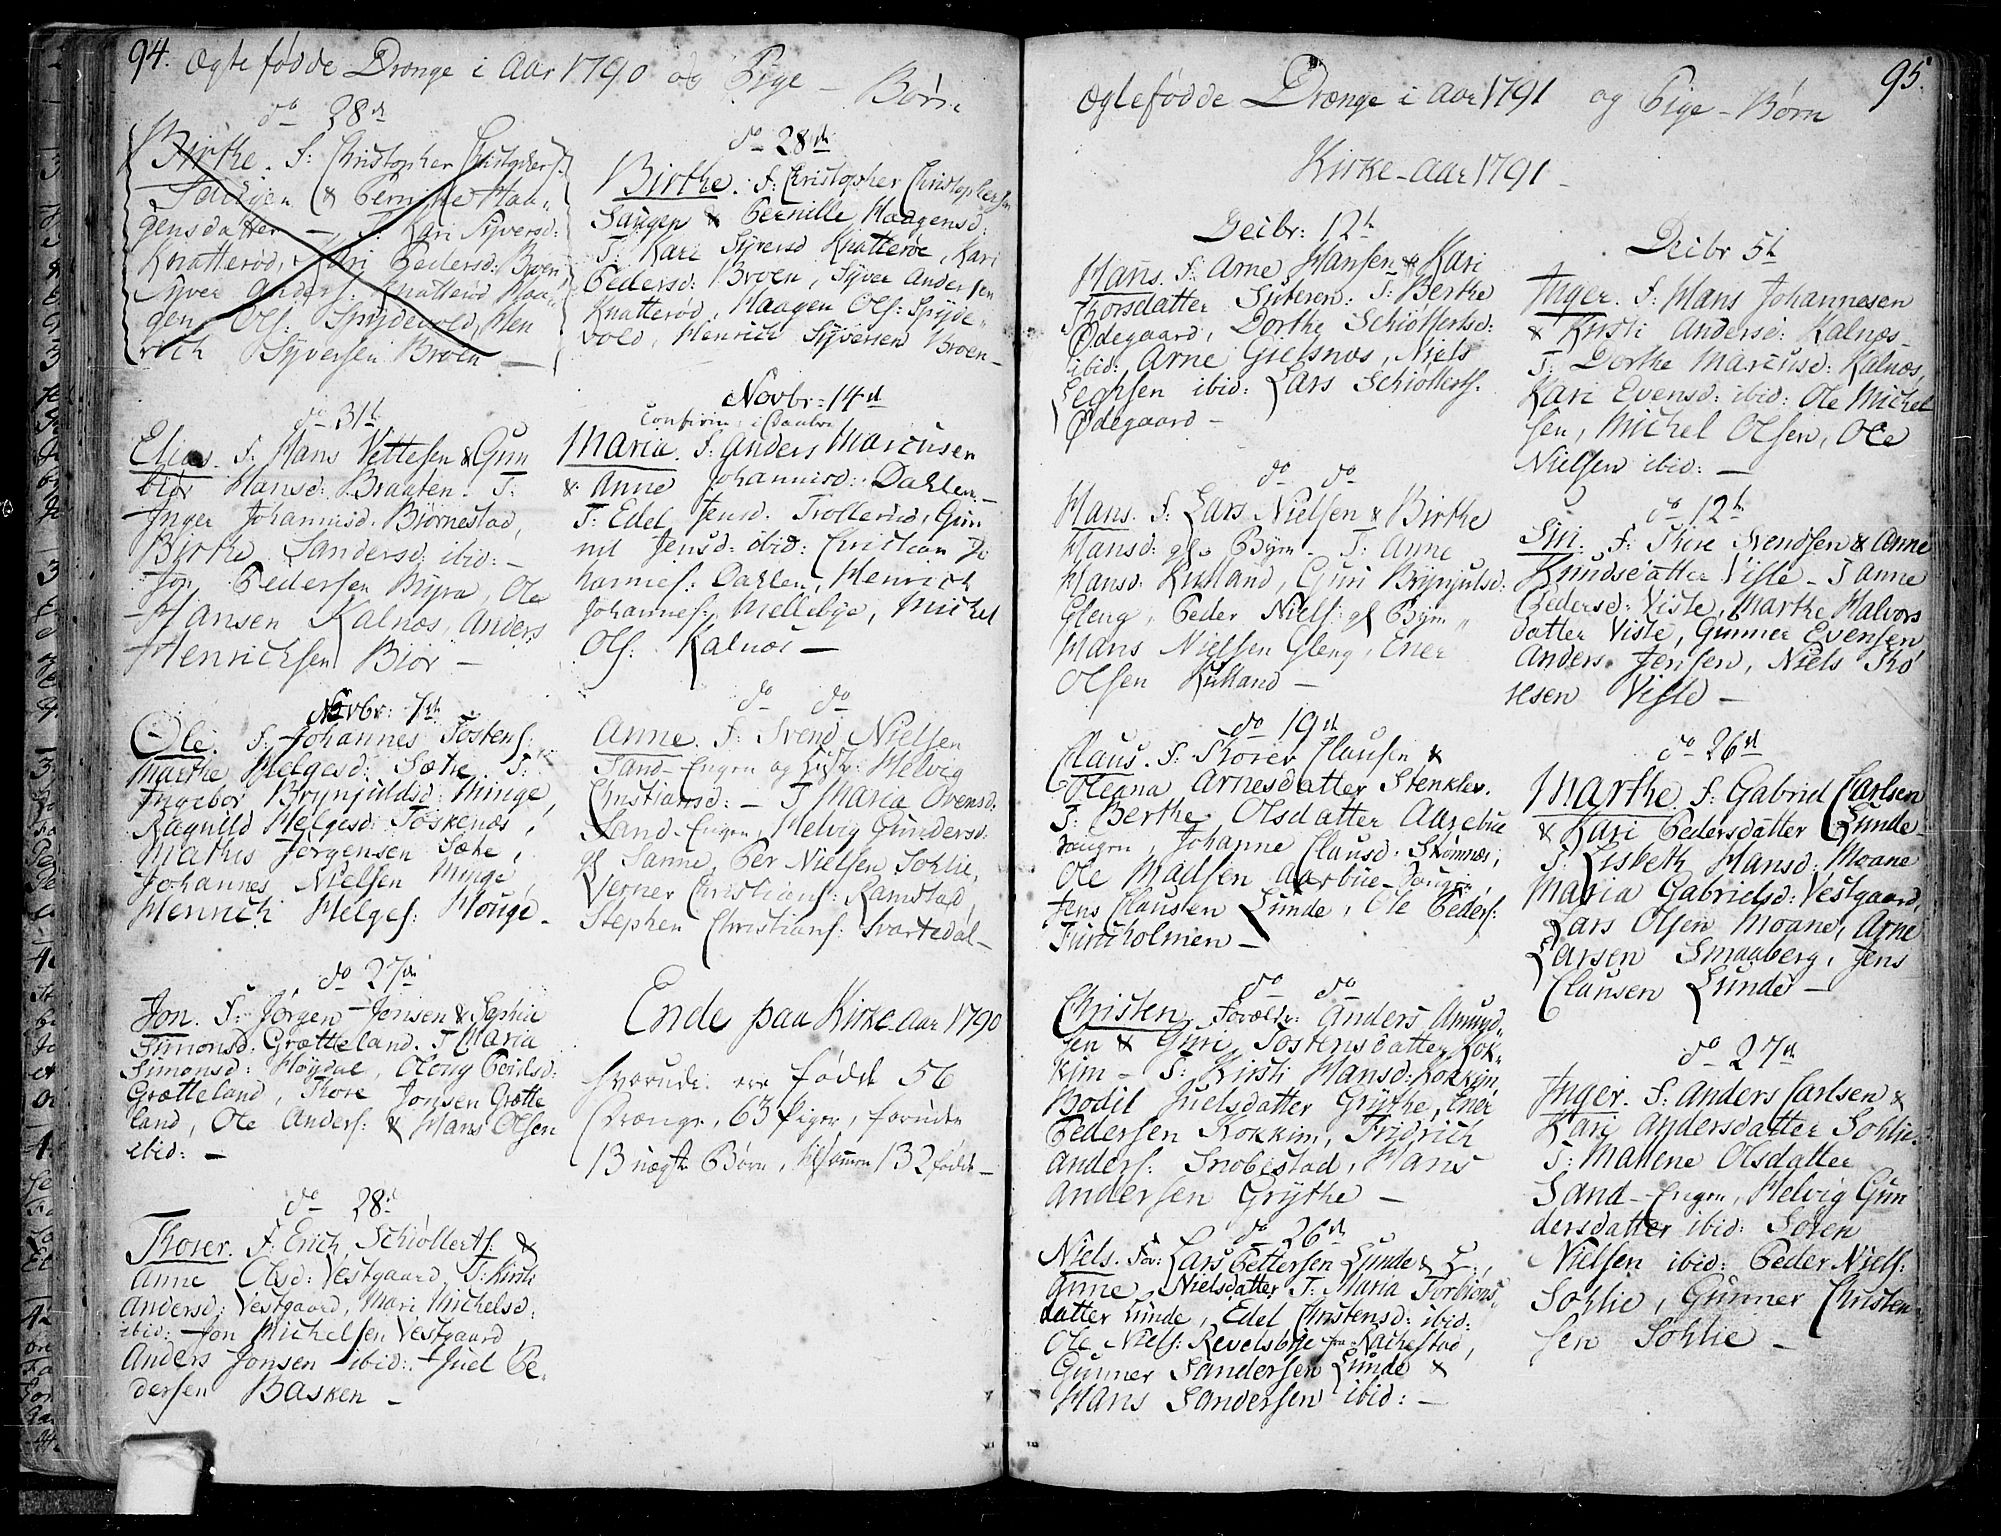 94. Ægte fødde Drenge i Aar 1790 og Pige - Børn
do 28de
Birthe. F: Christopher Christophers:
Saugen & Pernille Haa„
gensdatter — T: Kari Syvers:
Knatterød, Kari Pedersd: Broen
Syver Anders: Knatterød Haa„
gen Ols: Spydevold, Hen
rich Syversen Broen —
do 31te
Elias. F: Hans Vettesen & Gun
biør Hansd: Braaten. T:
Inger Johannisd. Biørnestad,
Birthe Sandersd: ibid: —
Jon Pedersen Myra, Ole
Hansen Kalnæs, Anders
Henrichsen Biør —
Novbr: 7de
Ole. F: Johannes Tostens:
Marthe Helgesd: Sæhe. T:
Ingebor Brynjuldsd: Minge,
Ragnild Helgesd: Toskenæs,
Mathis Jørgensen Sæhe,
Johannes Nielsen Minge,
Henrich Helges: Houge —
do 27de
Jon. F: Jørgen Jonsen & Sophie
Simonsd: Grætteland. T Maria
Simonsd: Høydal, Olong Povelsd:
Grætteland, Thore Jonsen Grætte
land, Ole Anders: & Hans Olsen
ibid: —
do 28d
Thorer. F: Erich Schiøllerts: &
Anne Olsd: Vestgaard, T: Kirsti
Andersd: Vestgaard, Mari Michelsd:
ibid: Jon Michelsen Vestgaard,
Anders Jonsen ibid: Juel Pe„
dersen Basken —
do 28de
Birthe. F: Christopher Christophersen
Saugen & Pernille Haagensd:
T: Kari Syversd Knatterøe, Kari
Pedersd: Broen, Syver Andersen
Knatterød, Haagen Ols: Spyde„
vold, Henrich Syversen Broen —
Novbr: 14de
Confirm: i
Maria. F: Anders Marcusen
& Anne Johannisd: Dahlen —
T: Edel Jensd. Trollerud, Gun
nil Jensd: ibid: Christian Jo
hannes: Dahlen, Henrich
Johannes: Mellebye, Michel
Ols: Kalnæs —
do do
Anne. F: Svend Nielsen
Sand-Engen og Hustr: Helvig
Christiansd: — T Maria Ovensd.
Sand-Engen, Helvig Gundersd:
gl Sanne, Per Nielsen Sohlie,
Verner Christians: Ramstad,
Stephen Christians: Svartedal —
Ende paa Kirke-Aar 1790
hvorudi ere fødde 56
Drenge, 63 Piger, foruden
13 uægte Børn, tilsamen 132 fødde —
Ægtefødde Drenge i Aar 1791 og Pige - Børn 95.
Kirke-Aar 1791 —
Decbr: 12te
Hans. F: Arne Hansen & Kari
Thorsdatter Suteren: T: Berthe
Ødegaard, Dorthe Schiøllertsd:
ibid: Arne Gielsnæs, Niels
Leghsen ibid: Lars Schiøllerts:
Ødegaard —
do do
Hans. F: Lars Nielsen & Birthe
Hansd: gl. Bym — T: Anne
Hansd: Kulland, Guri Brynjulsd:
Gleng, Peder Niels: gl Bym„
Hans Nielsen Gleng, Ener
Olsen Kulland —
do 19de
Claus. F: Thorer Clausen &
Oleana Arnesdatter Stenklev.
T: Berthe Olsdatter Aarebue
Saugen, Johanne Clausd: Skømnæs,
Ole Madsen Aarbue-Saugen,
Jens Clausen Lunde, Ole Peders:
Furuholmen —
do do
Christen Forældr: Anders Amund„
sen & Guri Tostensdatter Kok„
kim — T: Kirsti Hansd: Kokkim,
Bodil Juelsdatter Grythe, Ener
Pedersen Kokkim, Fridrich
Anders: Snobestad, Hans
Andersen Grythe —
do 26de
Niels. For: Lars Pettersen Lunde & L:,
Anne Nielsdatter T: Maria Torbiøns„
datter Lunde, Edel Christensd: ibid:
Ole Niels: Revelsbye fra Nachestad,
Gunner Sandersen Lunde &
Hans Sandersen ibid: —
Decbr 5te
Inger. F: Hans Johannesen
& Kirsti Andersd: Kalnæs —
T: Dorthe Marcusd: Kalnæs,
Kari Evensd: ibid: Ole Michel
sen, Michel Olsen, Ole
Nielsen ibid: —
do 12te
Siri. F: Thore Svendsen & Anne
Knudsdatter Visle — T Anne
Pedersd: Viste, Marthe Halvors
datter Viste, Gunner Evensen
Anders Jensen, Niels Tho
resen Visle —
do 26de
Marthe. F: Gabriel Carlsen
& Kari Pedersdatter Lunde
T: Lisbeth Hansd: Moane
Maria Gabrielsd: Vestgaard,
Lars Olsen Moane, Arne
Larsen Smaaberg, Jens
Clausen Lunde —
do 27de
Inger. F: Anders Carlsen &
Kari Andersdatter Sohlie.
T: Malene Olsdatter
Sand-Engen, Helvig Gun
dersdatter ibid: Søren
Nielsen ibid: Peder Niels:
Sohlie, Gunner Christen„
sen Sohlie —